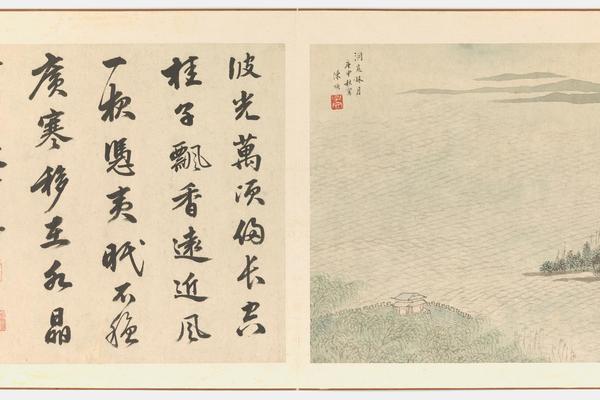 洞庭秋月
庚申秋寫
陳
波光萬頃長空
桂子飄香遠近風
一夜憑夷眠不穩
廣寒移在水晶